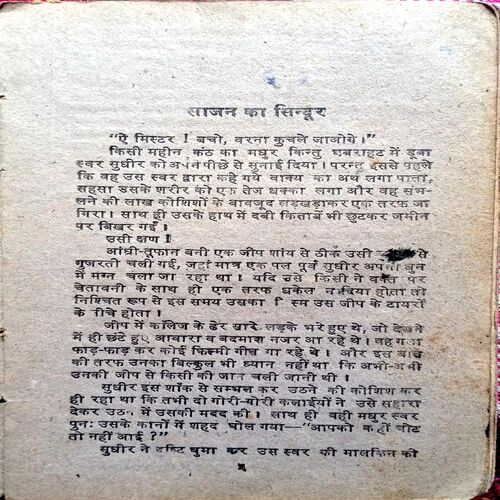 साजन का सिन्दूर
“ऐ मिस्टर ! बचो, वरना कुचले जाओगे ।”
किसी महीन कंठ का मधुर किन्तु घबराहट में डूबा
स्वर सुधीर को अपने पीछे से सुनाई दिया । परन्तु इससे पहले
कि वह उस स्वर द्वारा कहे गये वाक्य का अर्थ लगा पाता,
सहसा उसके शरीर को एक तेज धक्का लगा और वह संभ-
लने की लाख कोशिशों के बावजूद लड़खड़ाकर एक तरफ जा
गिरा । साथ ही उसके हाथ में दबी किताबें भी छुटकर जमीन
पर बिखर गईं ।
उसी क्षण !
आंधी-तूफान बनी एक जीप शांय से ठीक उसी से
गुजरती चली गई, जहां मात्र एक पल पूर्व सुधीर अपनी धुन
में मग्न चला जा रहा था । यदि उसे किसी ने वक्त पर
चेतावनी के साथ ही एक तरफ धकेल न दिया होता तो
निश्चित रूप से इस समय उसका जिस्म उस जीप के टायरों
के नीचे होता ।
जीप में कॉलिज के ढेर सारे लड़के भरे हुए थे, जो देखने
में ही छंटे हुए आवारा व बदमाश नजर आ रहे थे । वह गला
फाड़-फाड़ कर कोई फिल्मी गीत गा रहे थे । और इस बात
की तरफ उनका बिल्कुल भी ध्यान नहीं था कि अभी-अभी
उनकी जीप से किसी की जान चली जानी थी ।
सुधीर इस शॉक से सम्भल कर उठने की कोशिश कर
ही रहा था कि तभी दो गोरी-गोरी कलाईयों ने उसे सहारा
देकर उठने में उसकी मदद की । साथ ही वही मधुर स्वर
पुनः उसके कानों में शहद घोल गया—“आपको कहीं चोट
तो नहीं आई ?”
सुधीर ने दृष्टि घुमा कर उस स्वर की मालकिन को